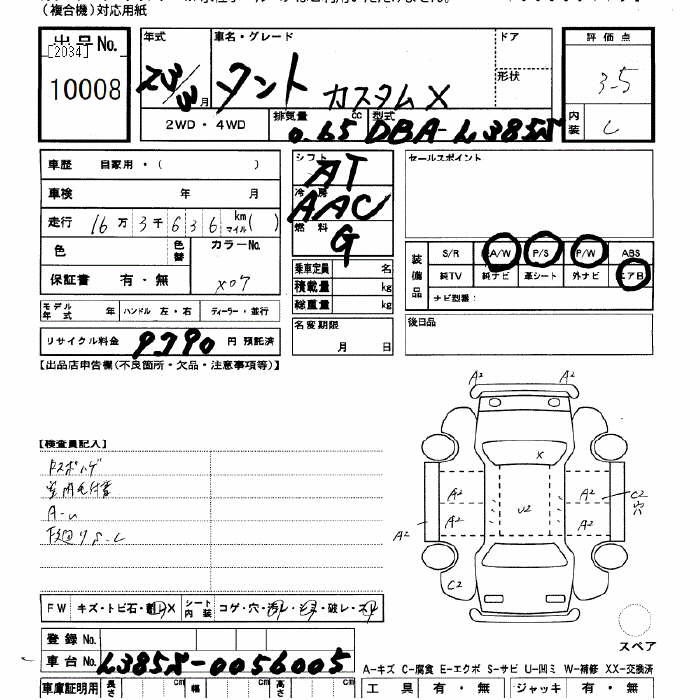 (複合機)対応用紙
出品No.
[2034]
10008
年式
23/3月
車名・グレード
タント カスタムX
ドア
形状
評価点
3-5
内装
C
2WD・4WD
排気量 0.65 cc
型式 DBA-L385S
車歴 自家用・( )
車検 年 月
走行 16万3千636 km マイル( )
色
色替
カラーNo.
X07
保証書 有・無
モデル年式 年
ハンドル 左・右
ディーラー・並行
リサイクル料金 9790 円 預託済
シフト AT
冷房 AAC
燃料 G
乗車定員 名
積載量 kg
総重量 kg
名変期限
月 日
セールスポイント
装備品
S/R A/W P/S P/W ABS
純TV 純ナビ 革シート 外ナビ エアB
ナビ型番:
後日品
【出品店申告欄(不良箇所・欠品・注意事項等)】
【検査員記入】
A-U
FW キズ・トビ石・割レX
シート内装 コゲ・穴・汚レ・シミ・破レ・スレ
登録No.
車台No. L385S-0056005
車庫証明用
長さ cm
幅 cm
高さ cm
A² A²
X
A² A²
A² A²
U2
A²
C2
穴
C2
スペア
A-キズ C-腐食 E-エクボ S-サビ U-凹ミ W-補修 XX-交換済
工具 有・無
ジャッキ 有・無